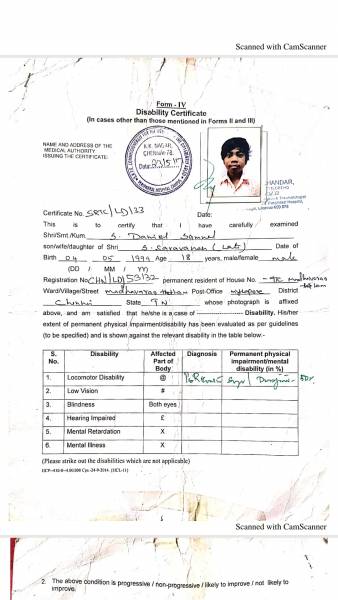 Scanned with CamScanner
Form - IV
Disability Certificate
(In cases other than those mentioned in Forms II and III)
NAME AND ADDRESS OF THE
MEDICAL AUTHORITY
ISSUING THE CERTIFICATE:
K.K. NAGAR,
CHENNAI-78.
Date:
Certificate No. SRIC/LD/33 Date:
This is to certify that I have carefully examined
Shri/Smt./Kum. S. Daniel Samuel
son/wife/daughter of Shri S. Saravanan (Late) Date of
Birth 04 05 1999 Age 18 years, male/female male
(DD / MM / YY)
Registration No. CHN/LD/53132 permanent resident of House No.
Ward/Village/Street Post-Office mylapore District
Chennai State T.N. whose photograph is affixed
above, and am satisfied that he/she is a case of ---------- Disability. His/her
extent of permanent physical impairment/disability has been evaluated as per guidelines
(to be specified) and is shown against the relevant disability in the table below:-
S. No. Disability Affected Part of Body Diagnosis Permanent physical impairment/mental disability (in %)
1. Locomotor Disability @
2. Low Vision #
3. Blindness Both eyes
4. Hearing Impaired £
5. Mental Retardation X
6. Mental Illness X
(Please strike out the disabilities which are not applicable)
Scanned with CamScanner
2. The above condition is progressive / non-progressive / likely to improve / not likely to
improve.